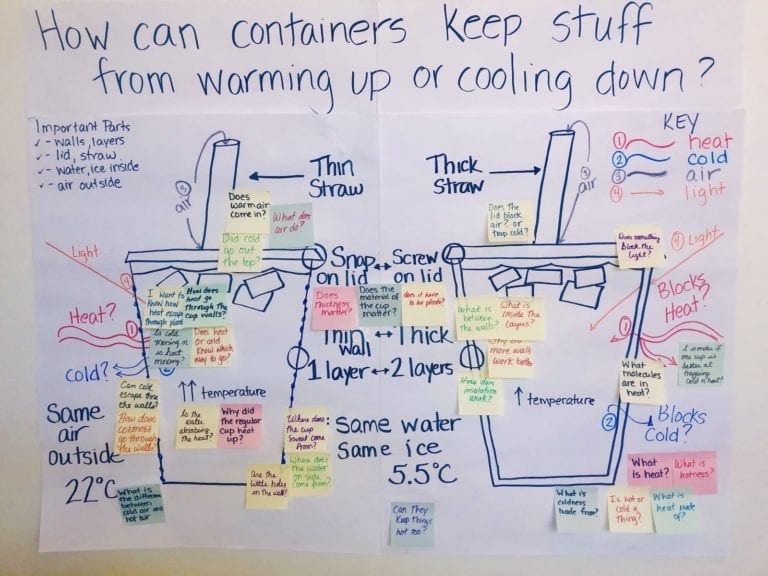 How can containers keep stuff
from warming up or cooling down?
Important Parts
✓ - walls, layers
✓ - lid, straw
✓ - water, ice inside
✓ - air outside
KEY
① heat
② cold
③ air
④ light
③
air
Thin
Straw
Thick
Straw
③
air
Does
warm air
come in?
What does
air do?
Did cold
go out
the top?
Does the
lid block
air? or
trap cold?
Does something
block the
light?
Light
④
④ Light
Snap ↔ Screw
on lid on lid
I want to
know how
heat escape
through
How does
heat go
through the
cup walls?
Does
thickness
matter?
Does the
material of
the cup
matter?
does it have
to be plastic?
What is
between
the walls?
What is
inside the
layers?
Blocks
Heat?
①
Heat?
①
Is cold
moving or
is heat
moving?
Does heat
or cold
know which
way to go?
Thin ↔ Thick
wall
1 layer ↔ 2 layers
Why did
more wall
work better
How does
insulation
work?
What
molecules
are in
heat?
I wonder if
one cup is
better at
trapping
cold or heat?
Cold?
②
Can cold
escape thru
the walls?
How does
coldness
go through
the walls?
↑↑ temperature
↑ temperature
Is the
water
absorbing
the heat?
Why did
the regular
cup heat
up?
Where does
the cup
sweat come
from?
Where does
the water
on side
come from?
Are the
little holes
in the wall?
Same
air
outside
22°C
What is
the different
between
cold air and
hot air
Same water
Same ice
5.5°C
Can they
keep things
hot too?
② Blocks
Cold?
What is
heat?
What is
hotness?
What is
coldness
made from?
Is hot or
cold a
thing?
What is
heat made
of?